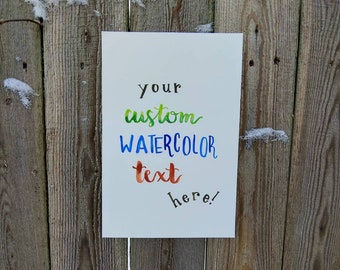 your
custom
WATERCOLOR
text
here!